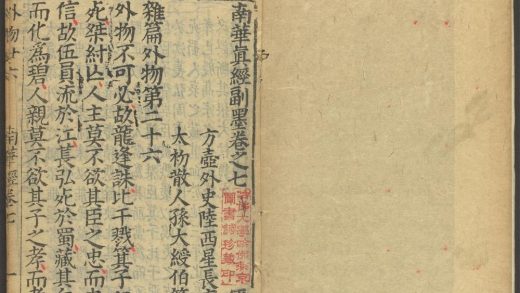 南華真經副墨卷之七
方壺外史陸西星長庚
太杤散人孫大綬伯符
雜篇外物第二十六
外物不可必故龍逢誅比干戮箕子狂
死桀紂亡人主莫不欲其臣之忠而忠
信故伍員流於江萇弘死於蜀藏其血
而化爲碧人親莫不欲其子之孝而孝
外物廿六
南華經卷七
一
圖書館珍藏印